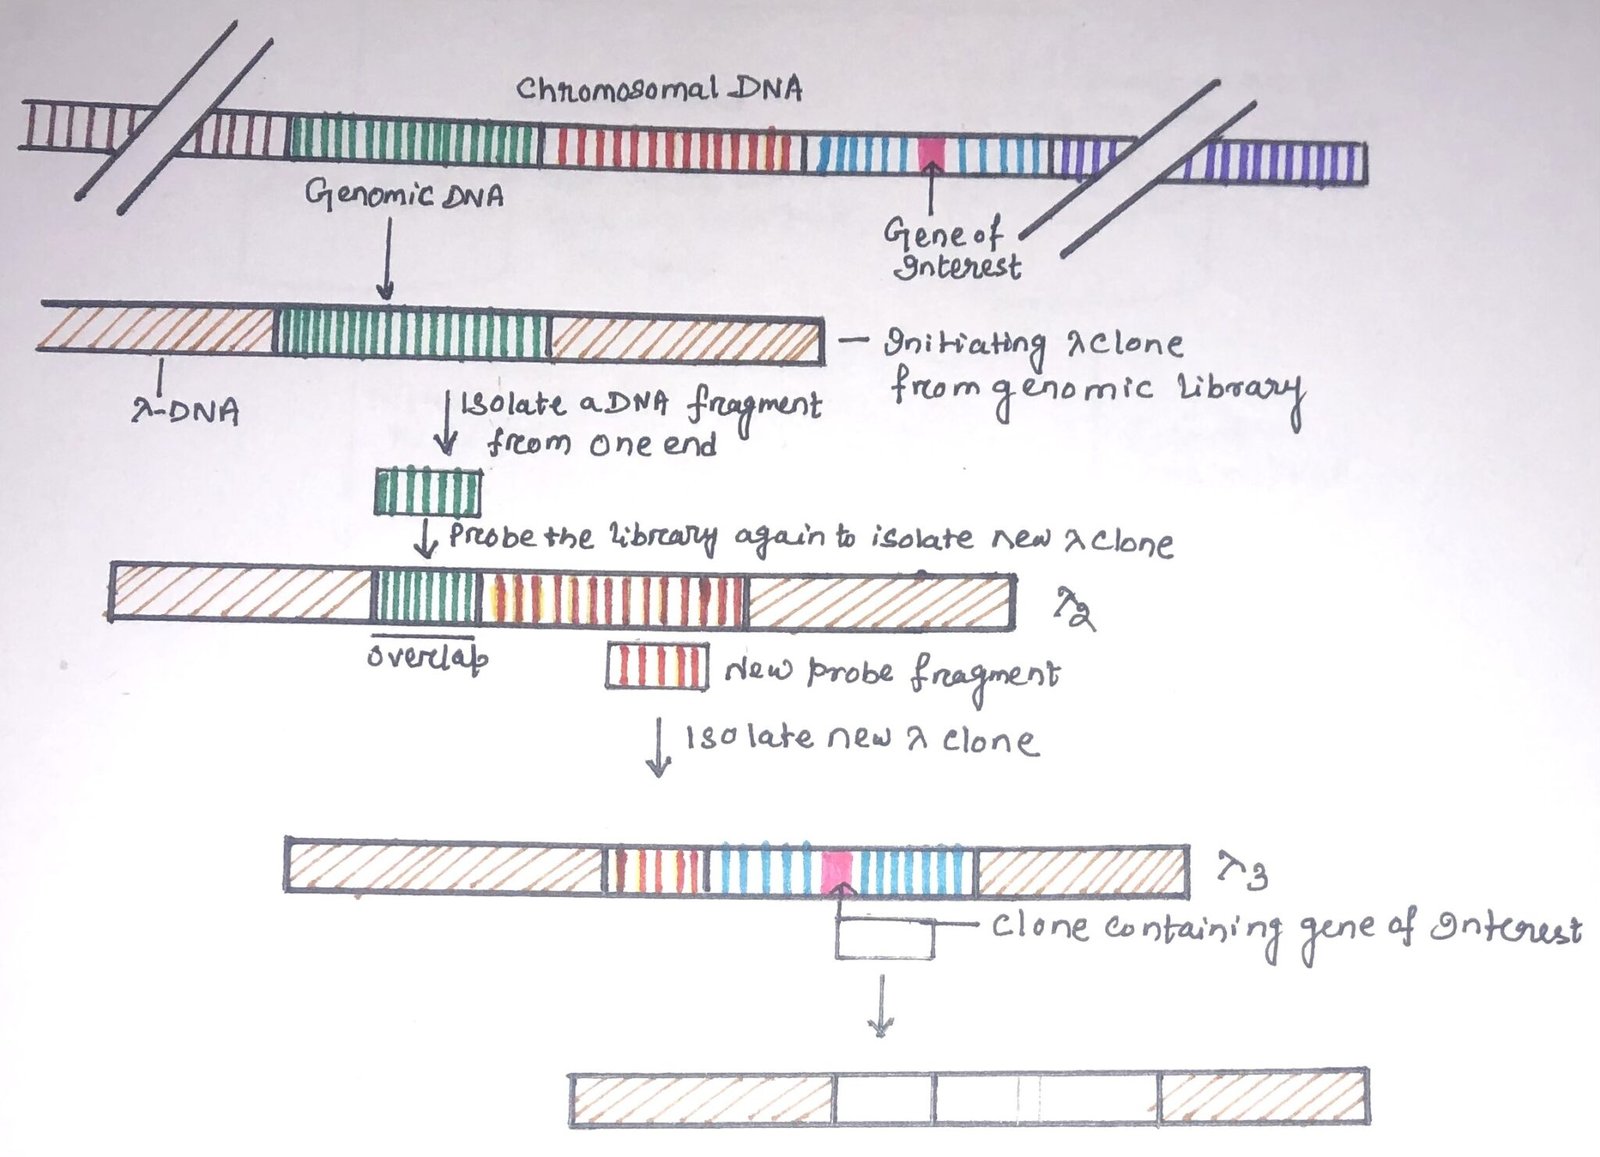 Chromosomal DNA
Genomic DNA
Gene of
Interest
Initiating λ clone
from genomic library
λ-DNA
Isolate a DNA fragment
from one end
Probe the library again to isolate new λ clone
λ2
overlap
New probe fragment
Isolate new λ clone
λ3
Clone containing gene of Interest